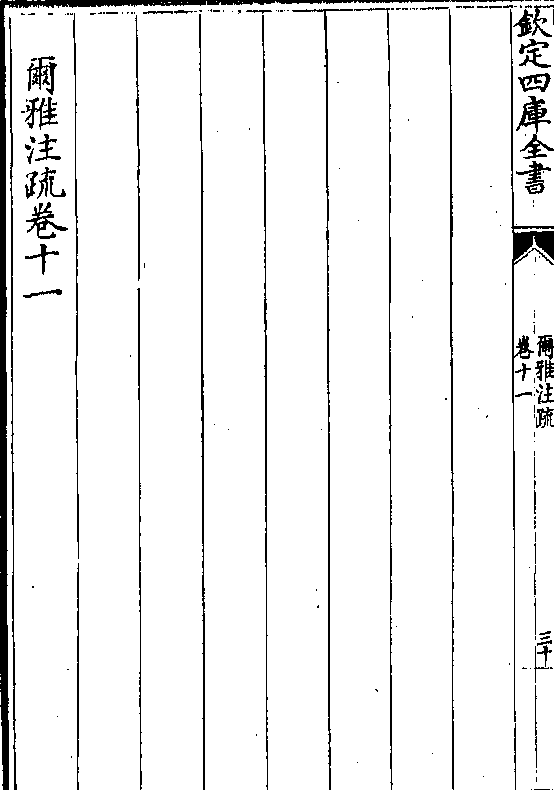 欽定四庫全書
爾雅注疏
卷十一
三十
爾雅注疏卷十一